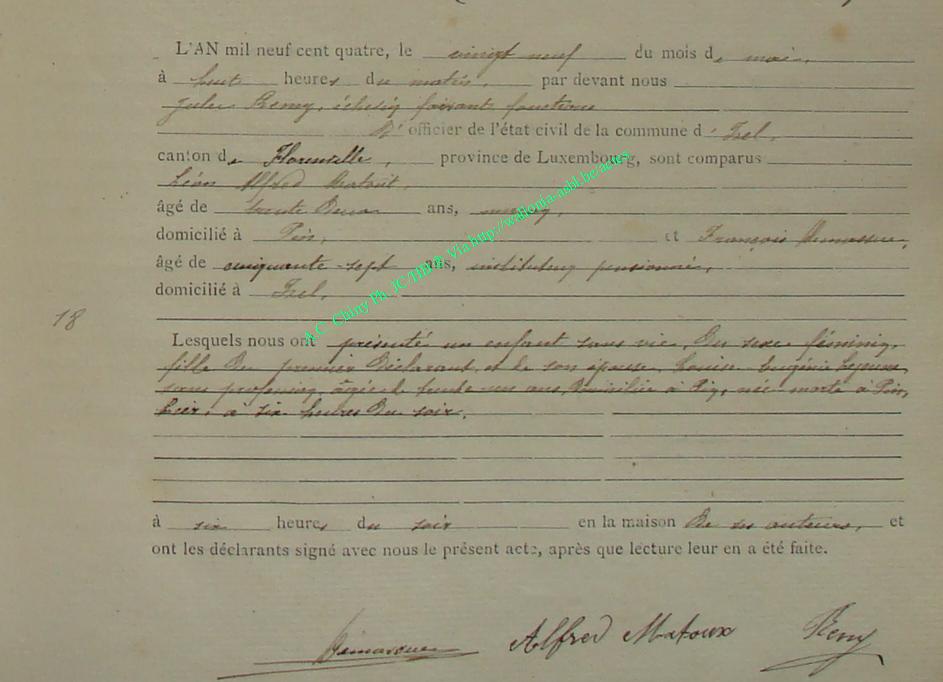 L'AN mil neuf cent quatre, le vingt neuf du mois de mai,
à huit heures du matin, par devant nous
Jules Remy, échevin faisant fonctions
d'officier de l'état civil de la commune d'Izel,
canton de Florenville, province de Luxembourg, sont comparus
Léon Alfred
âgé de trente deux ans,
domicilié à Pin, et François
âgé de cinquante-sept ans, instituteur pensionné,
domicilié à Izel,
18
Lesquels nous ont présenté un enfant sans vie, du sexe féminin,
fille du premier déclarant et de son épouse Louise Eugénie Lejeune,
sans profession, âgée de trente un ans, domiciliée à Pin, née morte à Pin,
hier, à six heures du soir.
à six heures du soir en la maison de ses auteurs, et
ont les déclarants signé avec nous le présent acte, après que lecture leur en a été faite.
Alfred Matoux Remy
A.C. Chiny Ph. JC TIBOR Via http://wallonia-asbl.be/actes